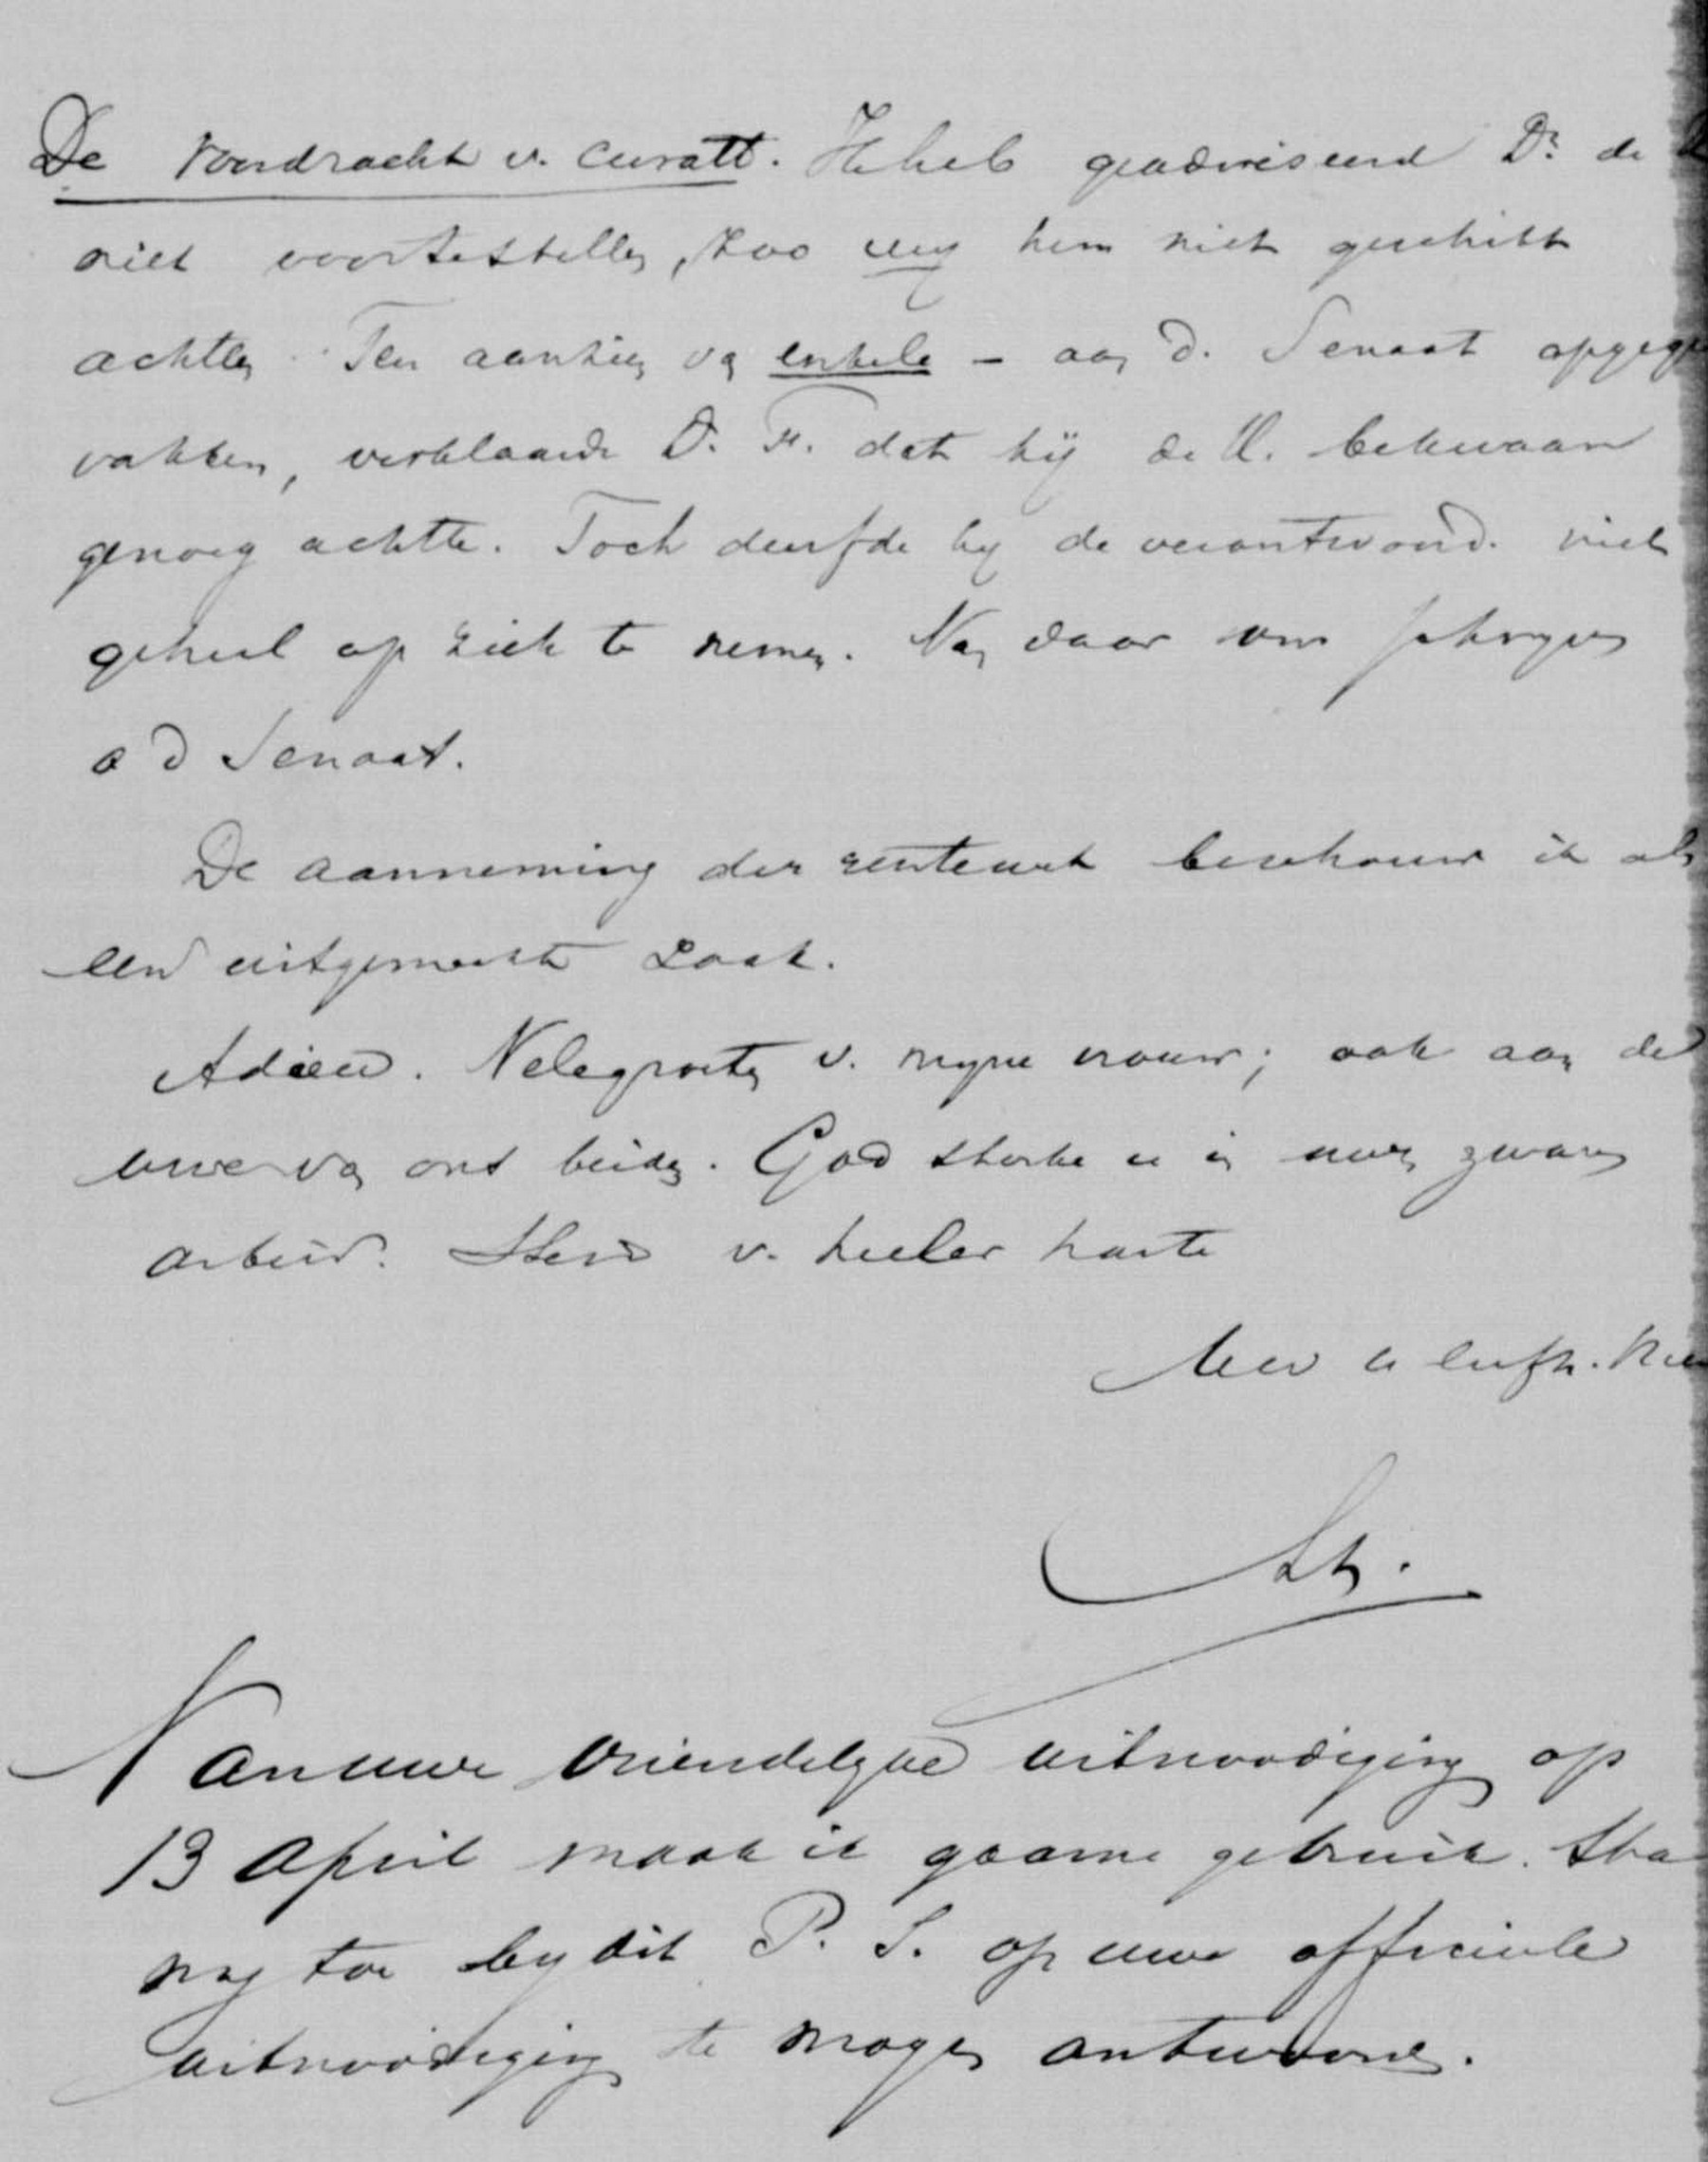 De voordracht v. Curatt. Ik heb geadviseerd Dr. de
niet voortestellen, zoo wy hem niet geschikt
achten. Ten aanzien van enkele - aan d. Senaat opgeg
vakken, verklaarde D. F. dat hij de V. bekwaam
genoeg achtte. Toch durfde hy de verantwoord. niet
geheel op zich te nemen. Van daar ons schryven
a d Senaat.
De aanneming der rentewet beschouw ik als
een uitgemaakte zaak.
Adieu. Vele groeten v. myne vrouw; ook aan de
uwe van ons beiden. God sterke u in uwen zwaren
arbeid. Steeds v. heeler harte
Uw
Van uwe vriendelyke uitnoodiging op
13 April maak ik gaarne gebruik. Sta
my toe by dit P. S. op uwe officieele
uitnoodiging te mogen antwoorden.